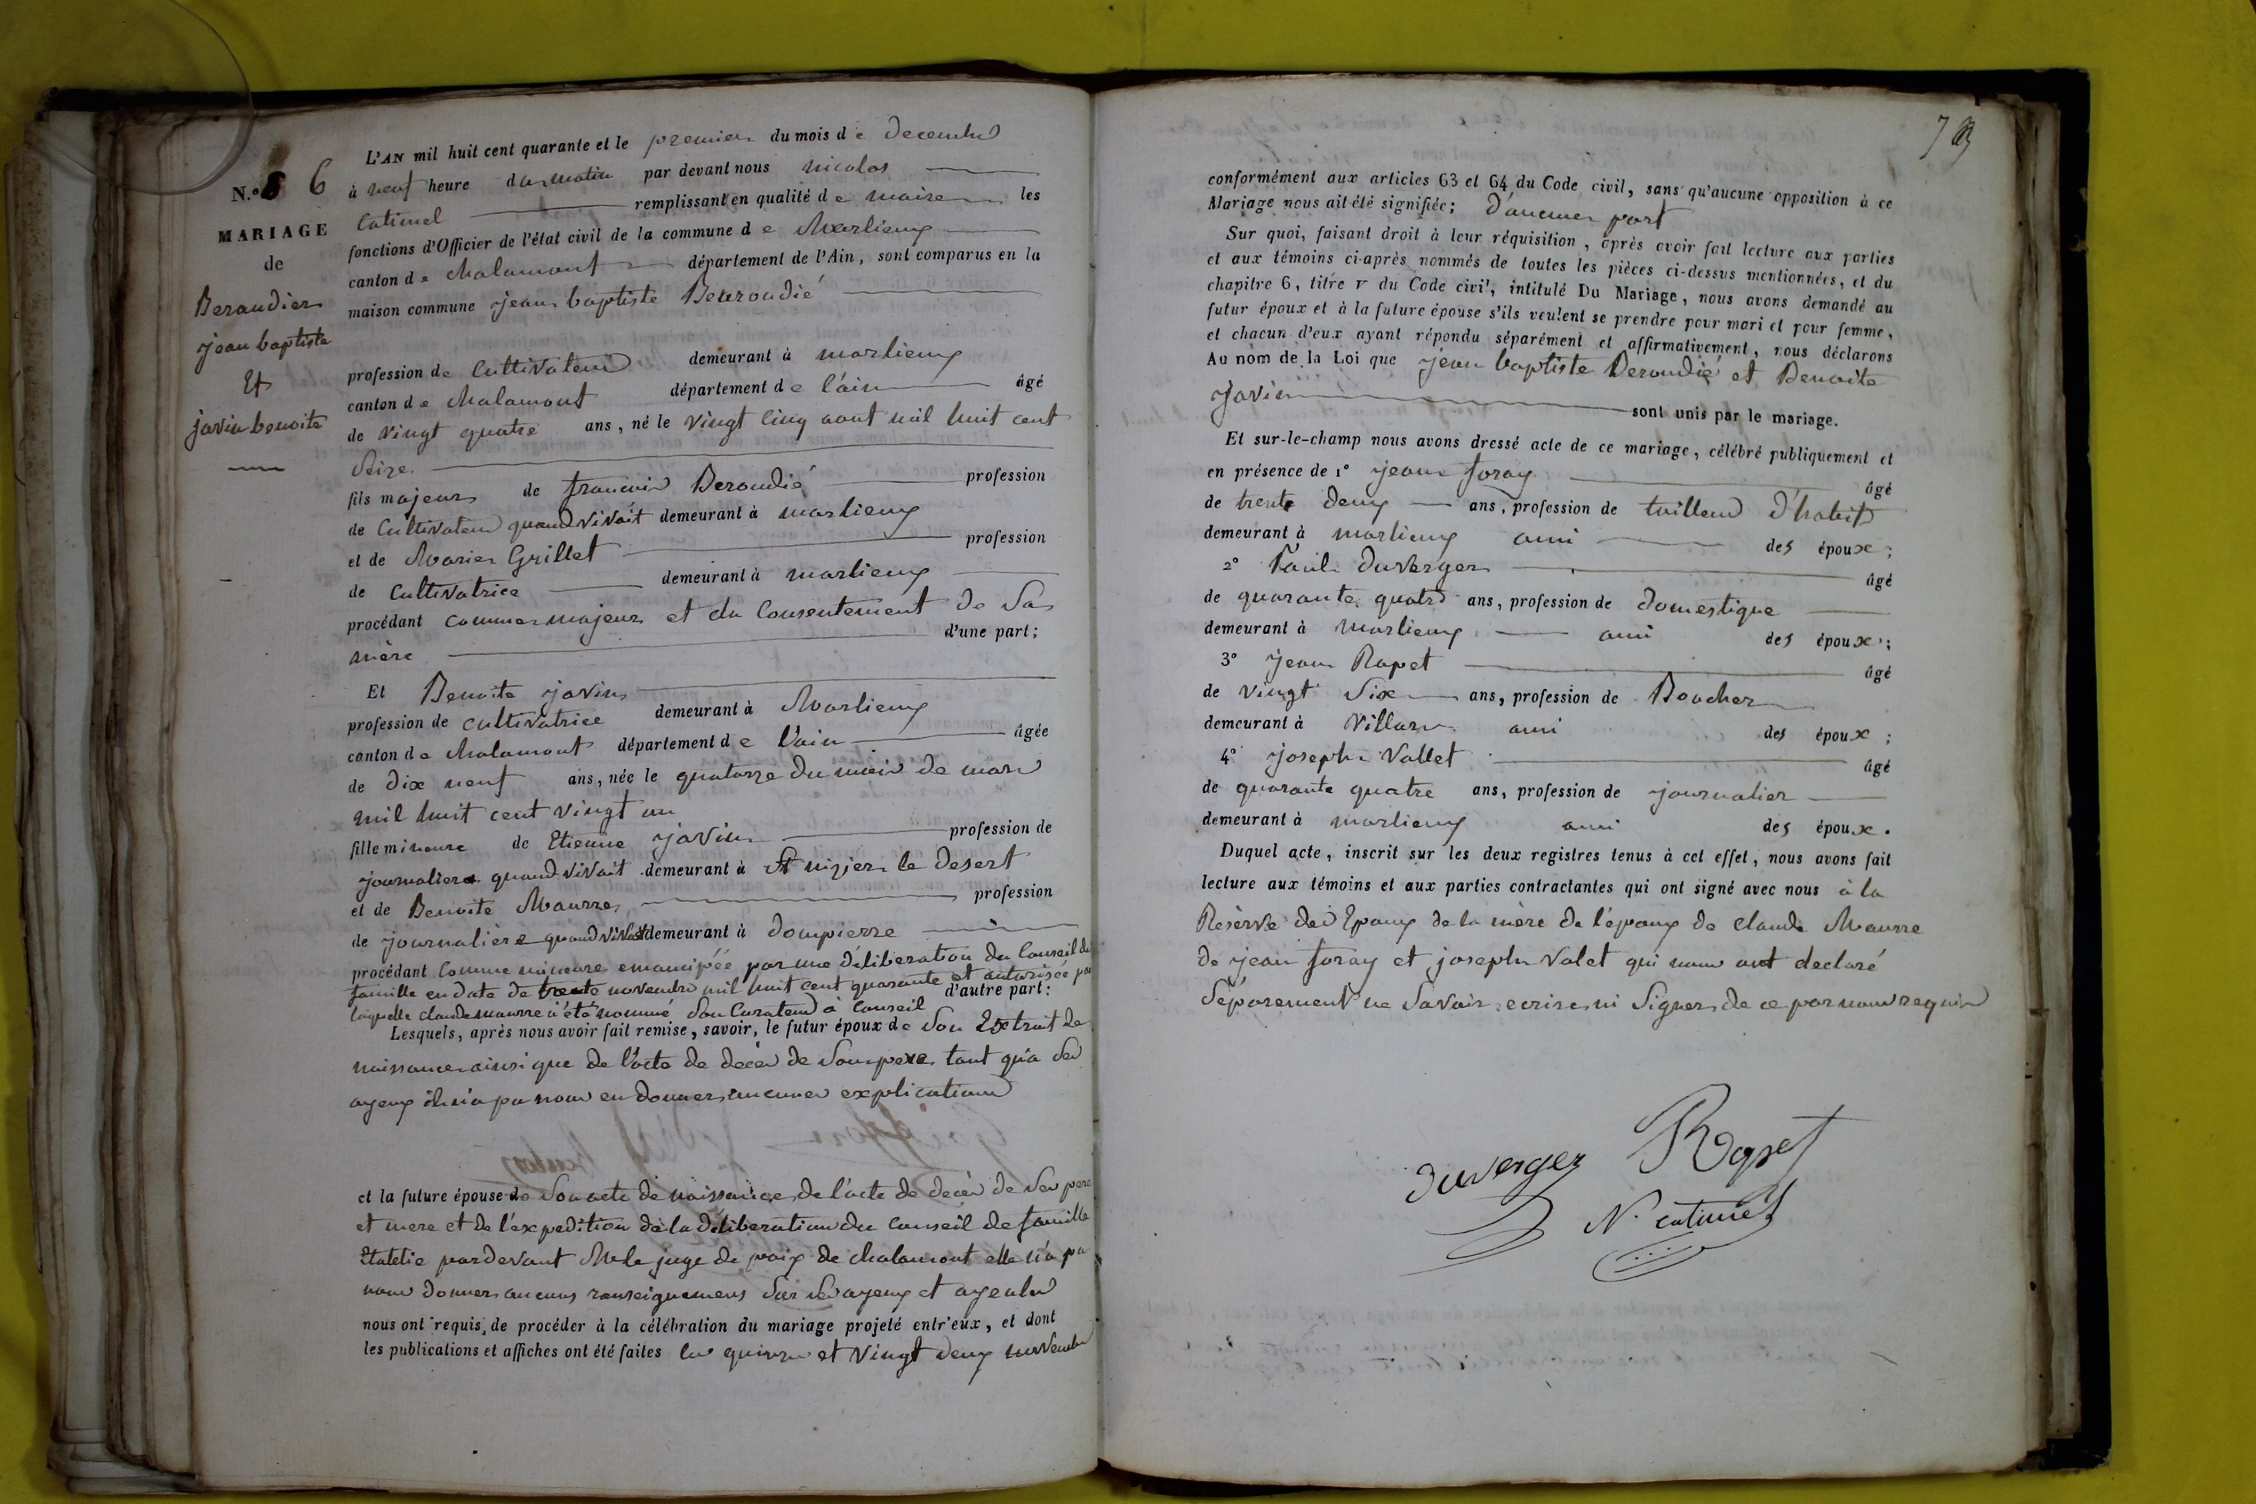 N.º 6
MARIAGE
de
Beraudier
jean baptiste
Et
javin benoite
L'AN mil huit cent quarante et le premier du mois de decembre
à neuf heure du matin par devant nous nicolas
Catimel remplissant en qualité de maire les
fonctions d'Officier de l'état civil de la commune de Marlieux
canton de chalamont département de l'Ain, sont comparus en la
maison commune jean baptiste Beuroudié
profession de Cultivateur demeurant à marlieux
canton de chalamont département de l'ain âgé
de vingt quatre ans, né le vingt cinq aout mil huit cent
Seize
fils majeur de francois Beroudié profession
de Cultivateur quand vivait demeurant à marlieux
et de Marie Grillet profession
de Cultivatrice demeurant à marlieux
procédant comme majeur et du Consentement de Sa
mère d'une part;
Et Benoite javin
profession de cultivatrice demeurant à Marlieux
canton de chalamont département de l'ain âgée
de dix neuf ans, née le quatorze du mois de mars
mil huit cent vingt un
fille mineure de Etienne javin profession de
journalier quand vivait demeurant à St nizier le desert
et de Benoite Maurre profession
de journalière quand vivait demeurant à dompierre
procédant Comme mineure emancipée par une déliberation du Conseil de
famille en date de trente novembre mil huit cent quarante et autorisée par
laquelle claude maurre a été nommé Son Curateur à Conseil d'autre part:
Lesquels, après nous avoir fait remise, savoir, le futur époux de Son Extrait de
naissance ainsi que de l'acte de decès de Son pere tant qu'a Ses
ayeux il n'a pu nous en donner aucunes explications
et la future épouse de Son acte de naissance, de l'acte de decès de Ses pere
et mere et de l'expedition de la deliberation du conseil de famille
pardevant Mr le juge de paix de chalamont elle n'a pu
nous donner aucuns renseignemens Sur Ses ayeux et ayeules
nous ont requis de procéder à la célébration du mariage projeté entr'eux, et dont
les publications et affiches ont été faites les quinze et vingt deux novembre
conformément aux articles 63 et 64 du Code civil, sans qu'aucune opposition à ce
Mariage nous ait été signifiée; d'aucune part
Sur quoi, faisant droit à leur réquisition, après avoir fait lecture aux parties
et aux témoins ci-après nommés de toutes les pièces ci-dessus mentionnées, et du
chapitre 6, titre V du Code civil, intitulé Du Mariage, nous avons demandé au
futur époux et à la future épouse s'ils veulent se prendre pour mari et pour femme,
et chacun d'eux ayant répondu séparément et affirmativement, nous déclarons
Au nom de la Loi que jean baptiste Beroudié et Benoite
javin sont unis par le mariage.
Et sur-le-champ nous avons dressé acte de ce mariage, célébré publiquement et
en présence de 1º jean foray âgé
de trente deux ans, profession de tailleur d'habit
demeurant à marlieux ami des époux;
2º Paul duverger âgé
de quarante quatre ans, profession de domestique
demeurant à marlieux ami des époux;
3º jean Rapet âgé
de vingt Six ans, profession de Boucher
demeurant à villars ami des époux;
4º joseph Vallet âgé
de quarante quatre ans, profession de journalier
demeurant à marlieux ami des époux.
Duquel acte, inscrit sur les deux registres tenus à cet effet, nous avons fait
lecture aux témoins et aux parties contractantes qui ont signé avec nous à la
Reserve des Epoux de la mère de l'époux de claude Maurre
de jean foray et joseph Valet qui nous ont declaré
Séparement ne Savoir ecrire ni Signer de ce par nous requis
duverger Rapet
N. catimel